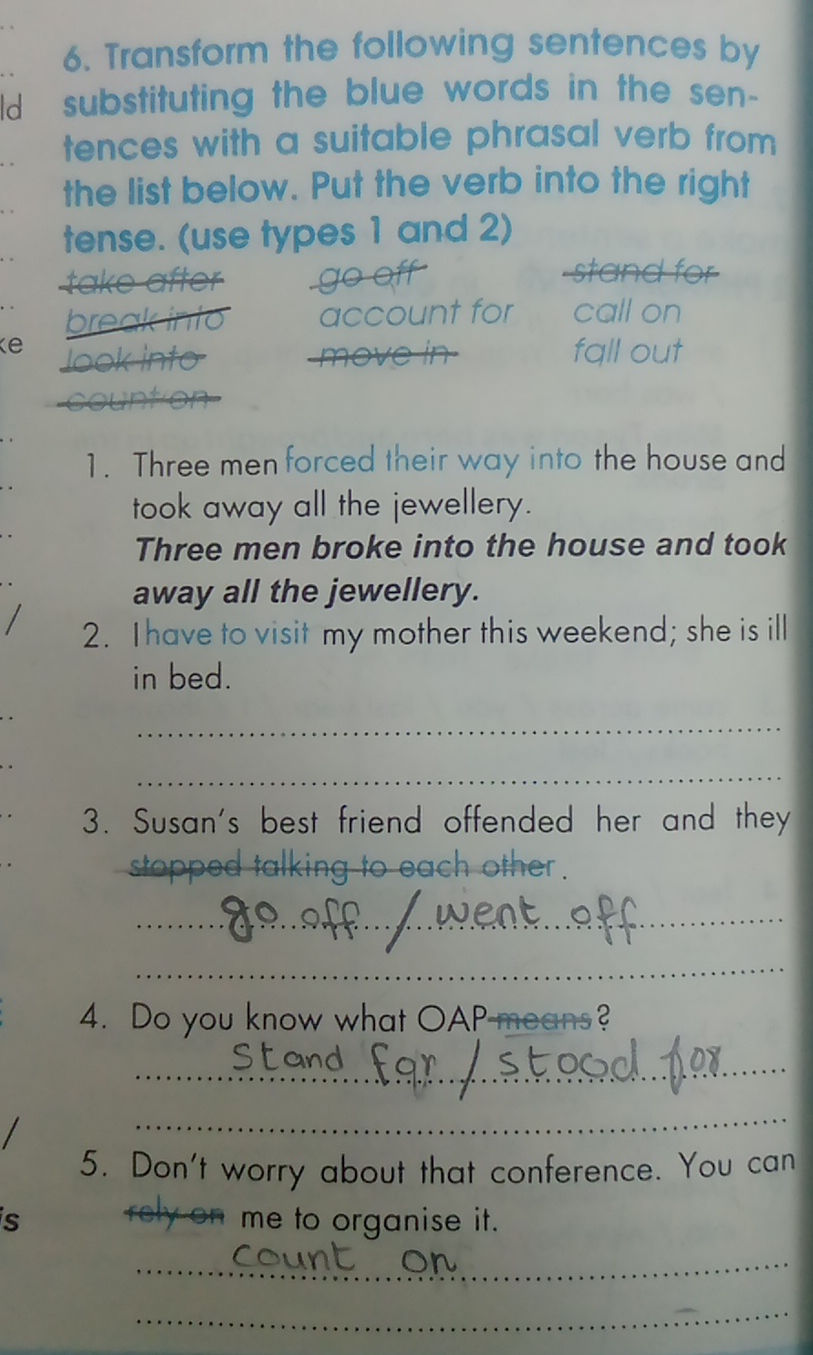 6. Transform the following sentences by
ld substituting the blue words in the sen-
tences with a suitable phrasal verb from
the list below. Put the verb into the right
tense. (use types 1 and 2)
take after go off stand for
break into account for call on
ke look into move in fall out
count on
1. Three men forced their way into the house and
took away all the jewellery.
Three men broke into the house and took
away all the jewellery.
/ 2. I have to visit my mother this weekend; she is ill
in bed.
3. Susan's best friend offended her and they
stopped talking to each other.
go off / went off
4. Do you know what OAP means?
Stand for / stood for
/
5. Don't worry about that conference. You can
is rely on me to organise it.
count on